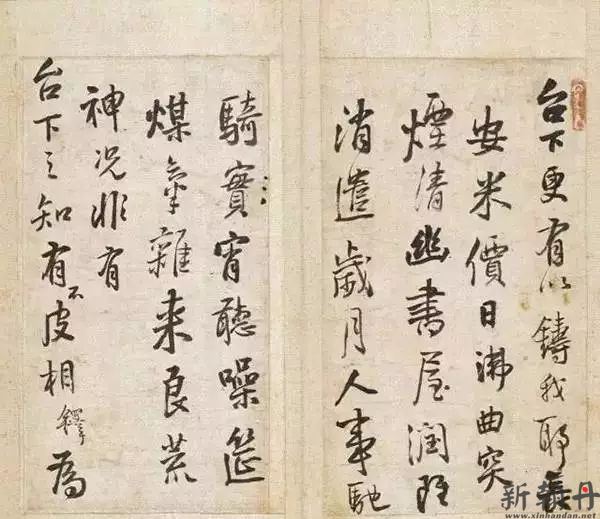 台下更有以鑄我耶長
安米價日沸曲突
煙清幽書屋潤
消遣歲月人事馳
騎實宵聽噪筵
煤氣雜來良荒
神況非有
台下之知有不皮相鐸為
新翰丹
www.xinhandan.net